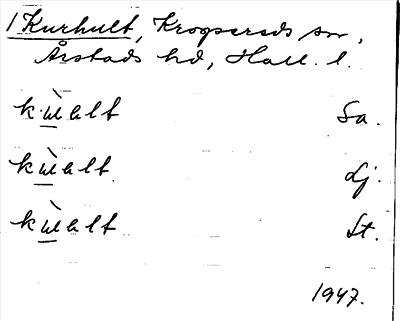 1 Kurhult, Krogsereds sn,
Årstads hd, Hall. l.
kùalt Sa.
kùalt Lj.
kùalt St.
1947.